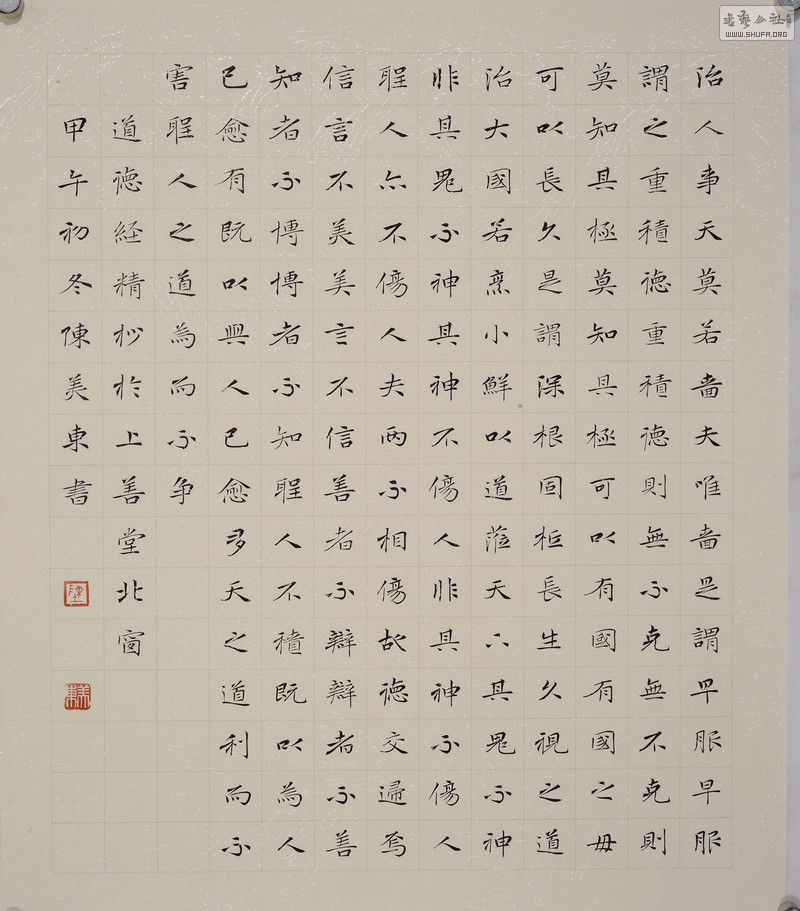 治人事天莫若嗇夫唯嗇是謂早服早服
謂之重積德重積德則無不克無不克則
莫知其極莫知其極可以有國有國之母
可以長久是謂深根固柢長生久視之道
治大國若烹小鮮以道蒞天下其鬼不神
非其鬼不神其神不傷人非其神不傷人
聖人亦不傷人夫兩不相傷故德交歸焉
信言不美美言不信善者不辯辯者不善
知者不博博者不知聖人不積既以為人
已愈有既以與人已愈多天之道利而不
害聖人之道為而不爭
道德經精妙於上善堂北窗
甲午初冬陳美東書
書藝公社
WWW.SHUFA.ORG